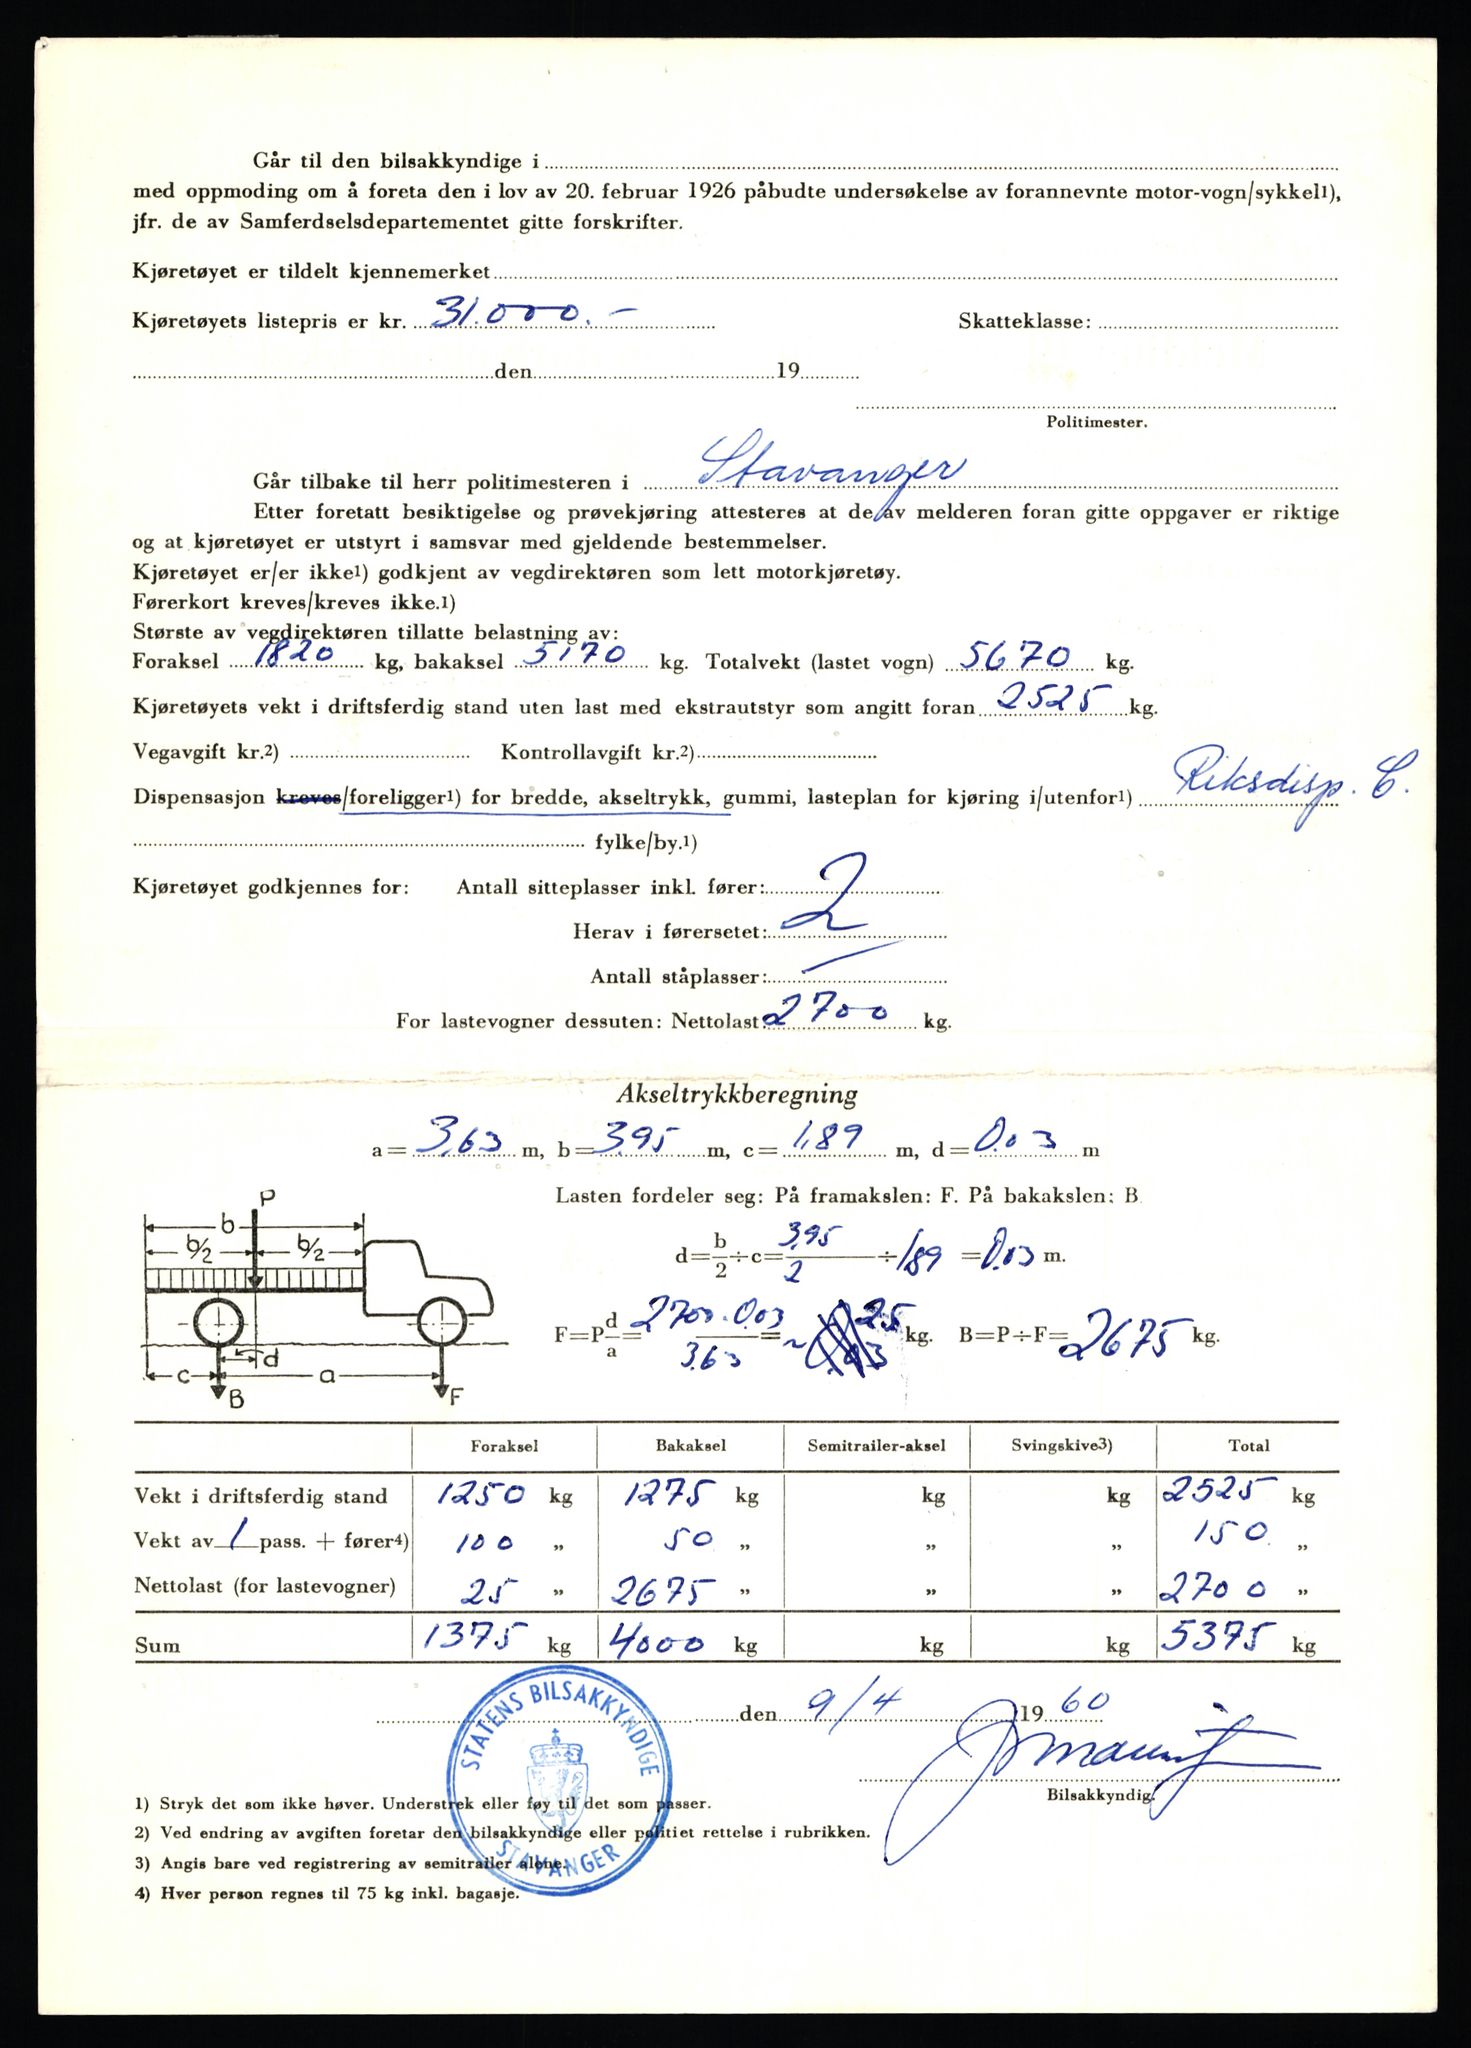 Går til den bilsakkyndige i
med oppmoding om å foreta den i lov av 20. februar 1926 påbudte undersøkelse av forannevnte motor-vogn/sykkel1),
jfr. de av Samferdselsdepartementet gitte forskrifter.
Kjøretøyet er tildelt kjennemerket
Kjøretøyets listepris er kr. 31.000.- Skatteklasse:
den 19
Politimester.
Går tilbake til herr politimesteren i Stavanger
Etter foretatt besiktigelse og prøvekjøring attesteres at de av melderen foran gitte oppgaver er riktige
og at kjøretøyet er utstyrt i samsvar med gjeldende bestemmelser.
Kjøretøyet er/er ikke1) godkjent av vegdirektøren som lett motorkjøretøy.
Førerkort kreves/kreves ikke.1)
Største av vegdirektøren tillatte belastning av:
Foraksel 1820 kg, bakaksel 5170 kg. Totalvekt (lastet vogn) 5670 kg.
Kjøretøyets vekt i driftsferdig stand uten last med ekstrautstyr som angitt foran 2525 kg.
Vegavgift kr.2) Kontrollavgift kr.2)
Dispensasjon kreves/foreligger1) for bredde, akseltrykk, gummi, lasteplan for kjøring i/utenfor1) Riksdisp. C.
fylke/by.1)
Kjøretøyet godkjennes for: Antall sitteplasser inkl. fører: 2
Herav i førersetet:
Antall ståplasser: /
For lastevogner dessuten: Nettolast: 2700 kg.
Akseltrykkberegning
a = 3,63 m, b = 3,95 m, c = 1,89 m, d = 0.03 m
Lasten fordeler seg: På framakslen: F. På bakakslen: B.
d = b/2 ÷ c = 3,95/2 ÷ 1,89 = 0.03 m.
F = P d/a = 2700 · 0.03/3,63 = ~ 25 kg. B = P ÷ F = 2675 kg.
P
b
b/2 b/2
d
c a
B F
Foraksel Bakaksel Semitrailer-aksel Svingskive3) Total
Vekt i driftsferdig stand 1250 kg 1275 kg kg kg 2525 kg
Vekt av 1 pass. + fører4) 100 „ 50 „ „ „ 150 „
Nettolast (for lastevogner) 25 „ 2675 „ „ „ 2700 „
Sum 1375 kg 4000 kg kg kg 5375 kg
den 9/4 1960
Bilsakkyndig.
STATENS BILSAKKYNDIGE
STAVANGER
1) Stryk det som ikke høver. Understrek eller føy til det som passer.
2) Ved endring av avgiften foretar den bilsakkyndige eller politiet rettelse i rubrikken.
3) Angis bare ved registrering av semitrailer alene.
4) Hver person regnes til 75 kg inkl. bagasje.